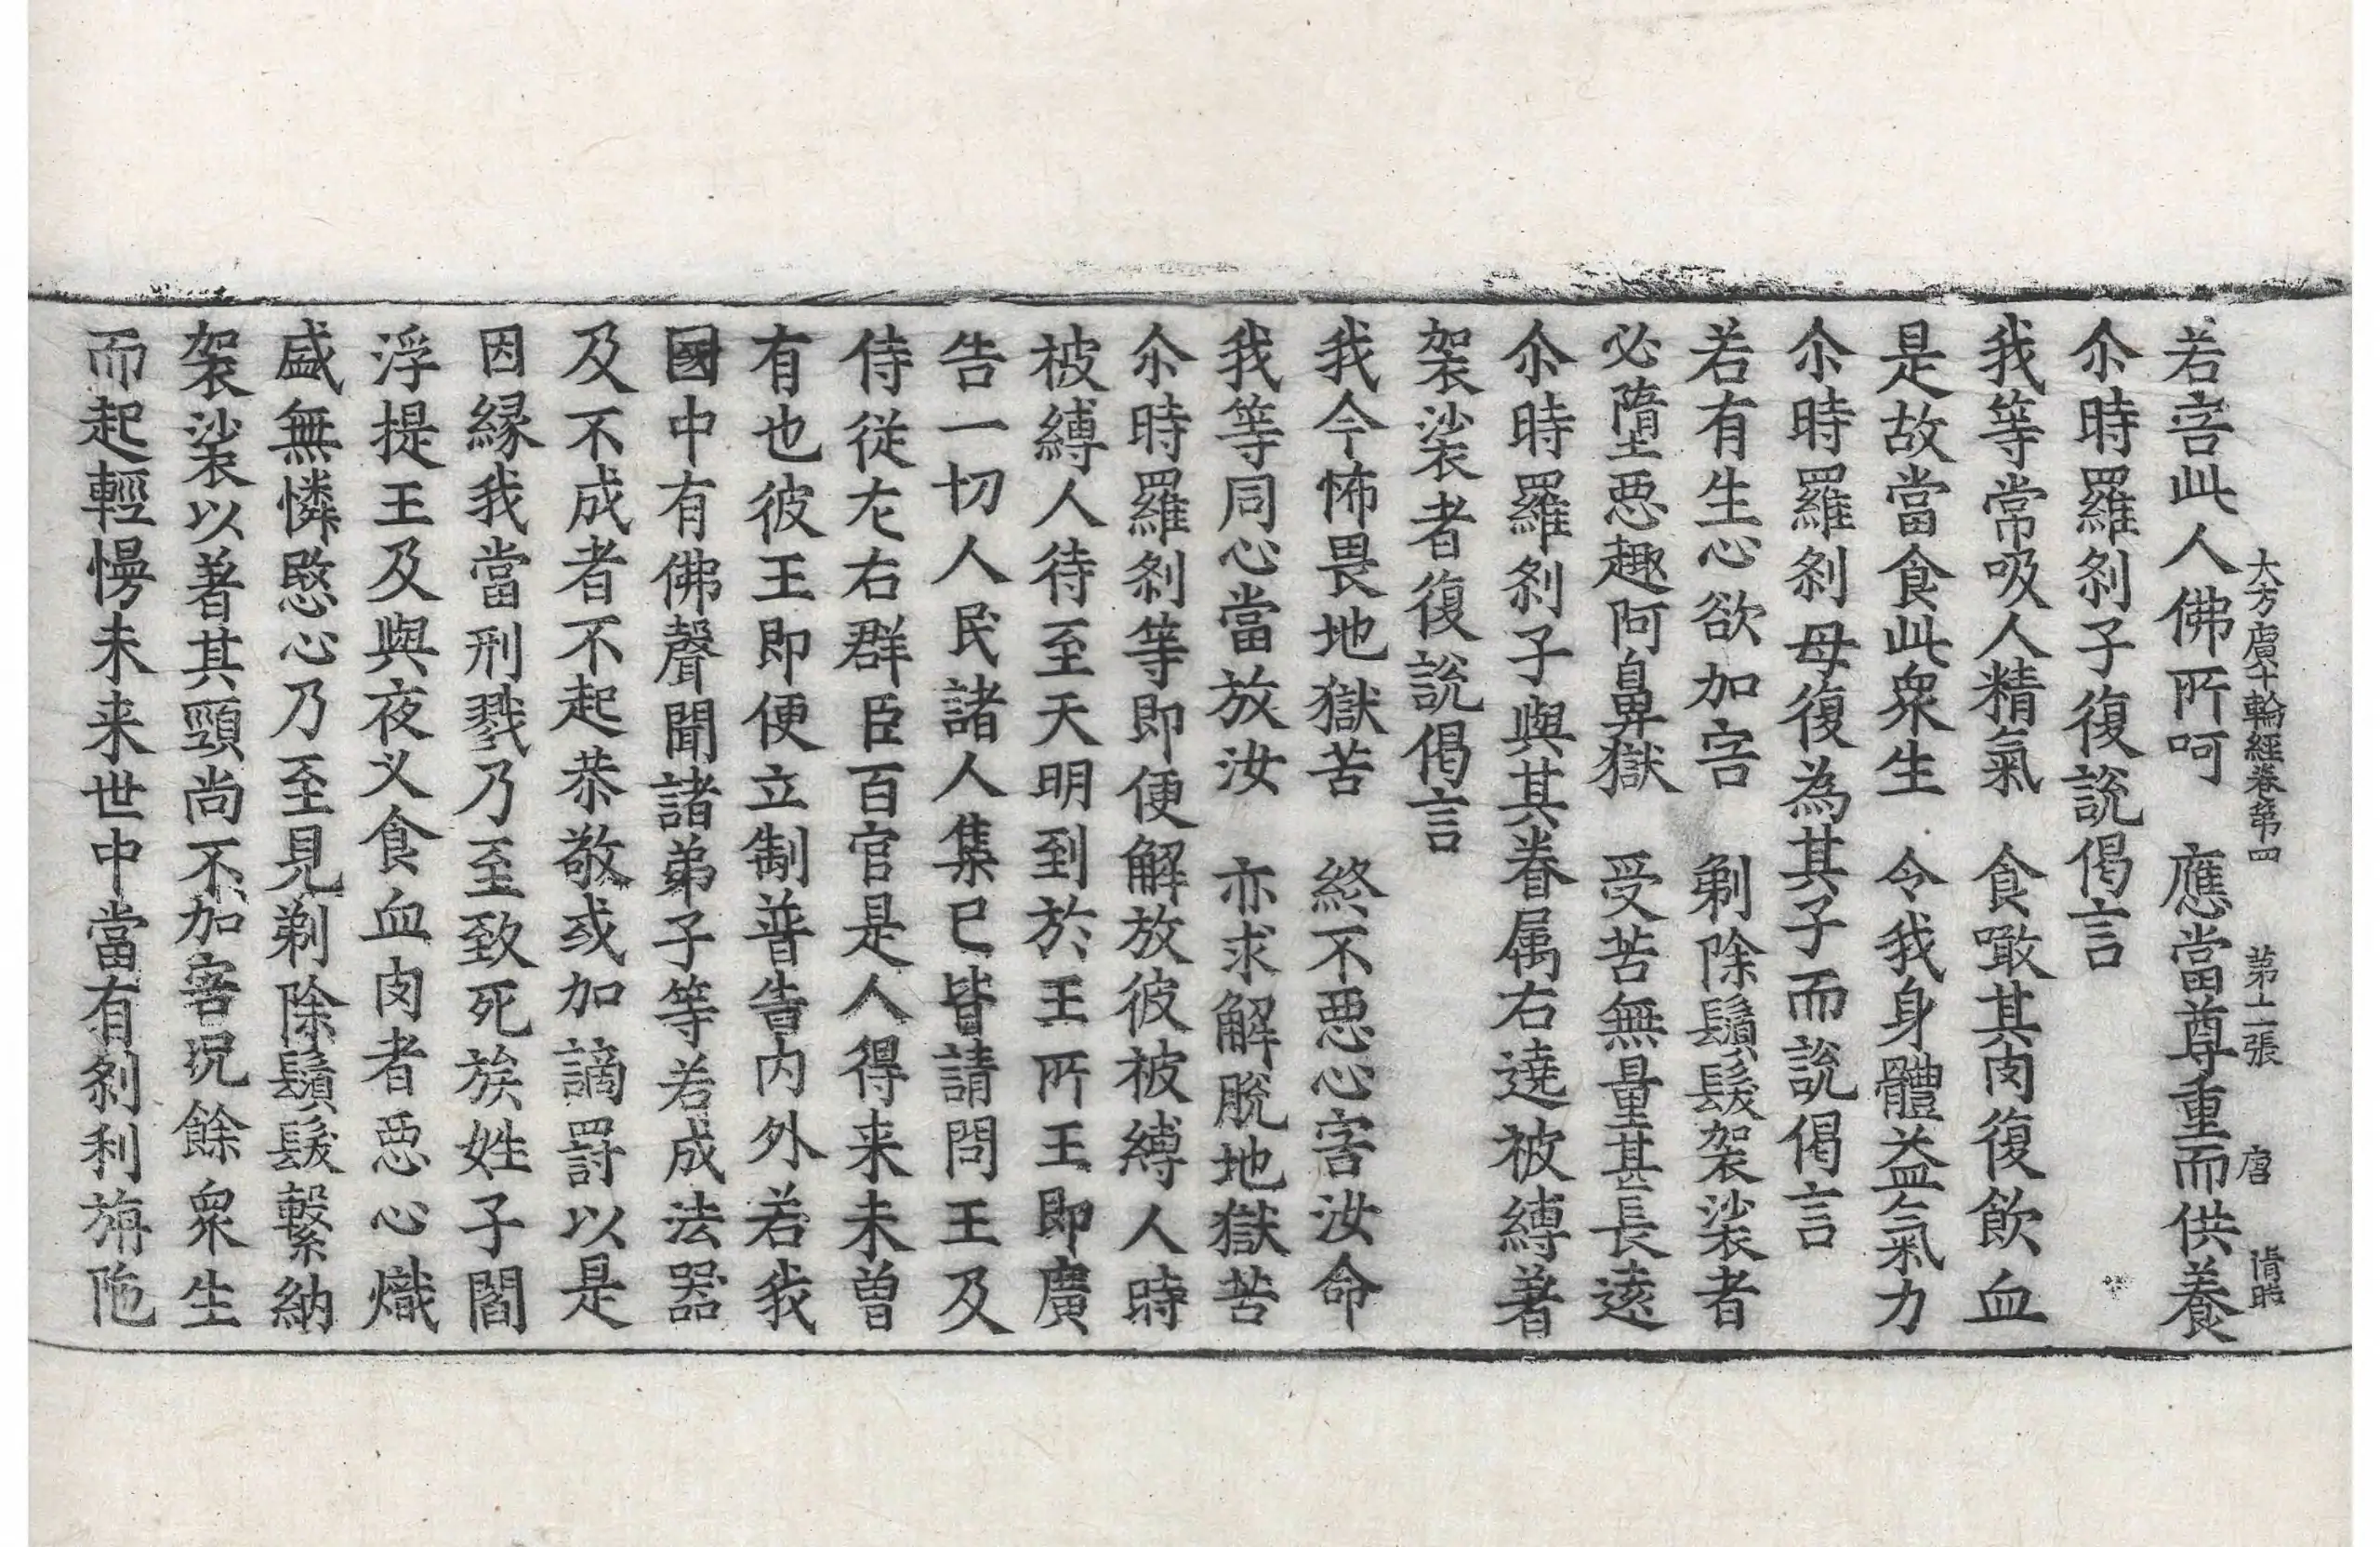 大方廣十輪經卷第四　第十二張　唐
若害此人佛所呵　應當尊重而供養
尒時羅剎子復說偈言
我等常吸人精氣　食噉其肉復飲血
是故當食此衆生　令我身體益氣力
尒時羅剎母復為其子而說偈言
若有生心欲加害　剃除鬚髮袈裟者
必墮惡趣阿鼻獄　受苦無量甚長遠
尒時羅剎子與其眷属右遶被縛著
袈裟者復說偈言
我今怖畏地獄苦　終不惡心害汝命
我等同心當放汝　亦求解脫地獄苦
尒時羅剎等即便解放彼被縛人時
被縛人待至天明到於王所王即廣
告一切人民諸人集已皆請問王及
侍從左右群臣百官是人得来未曾
有也彼王即便立制普告内外若我
國中有佛聲聞諸弟子等若成法器
及不成者不起恭敬或加謫罰以是
因緣我當刑戮乃至致死族姓子閻
浮提王及與夜义食血肉者惡心熾
盛無憐愍心乃至見剃除鬚髮繫納
袈裟以著其頸尚不加害况餘衆生
而起輕慢未来世中當有剎利旃陁